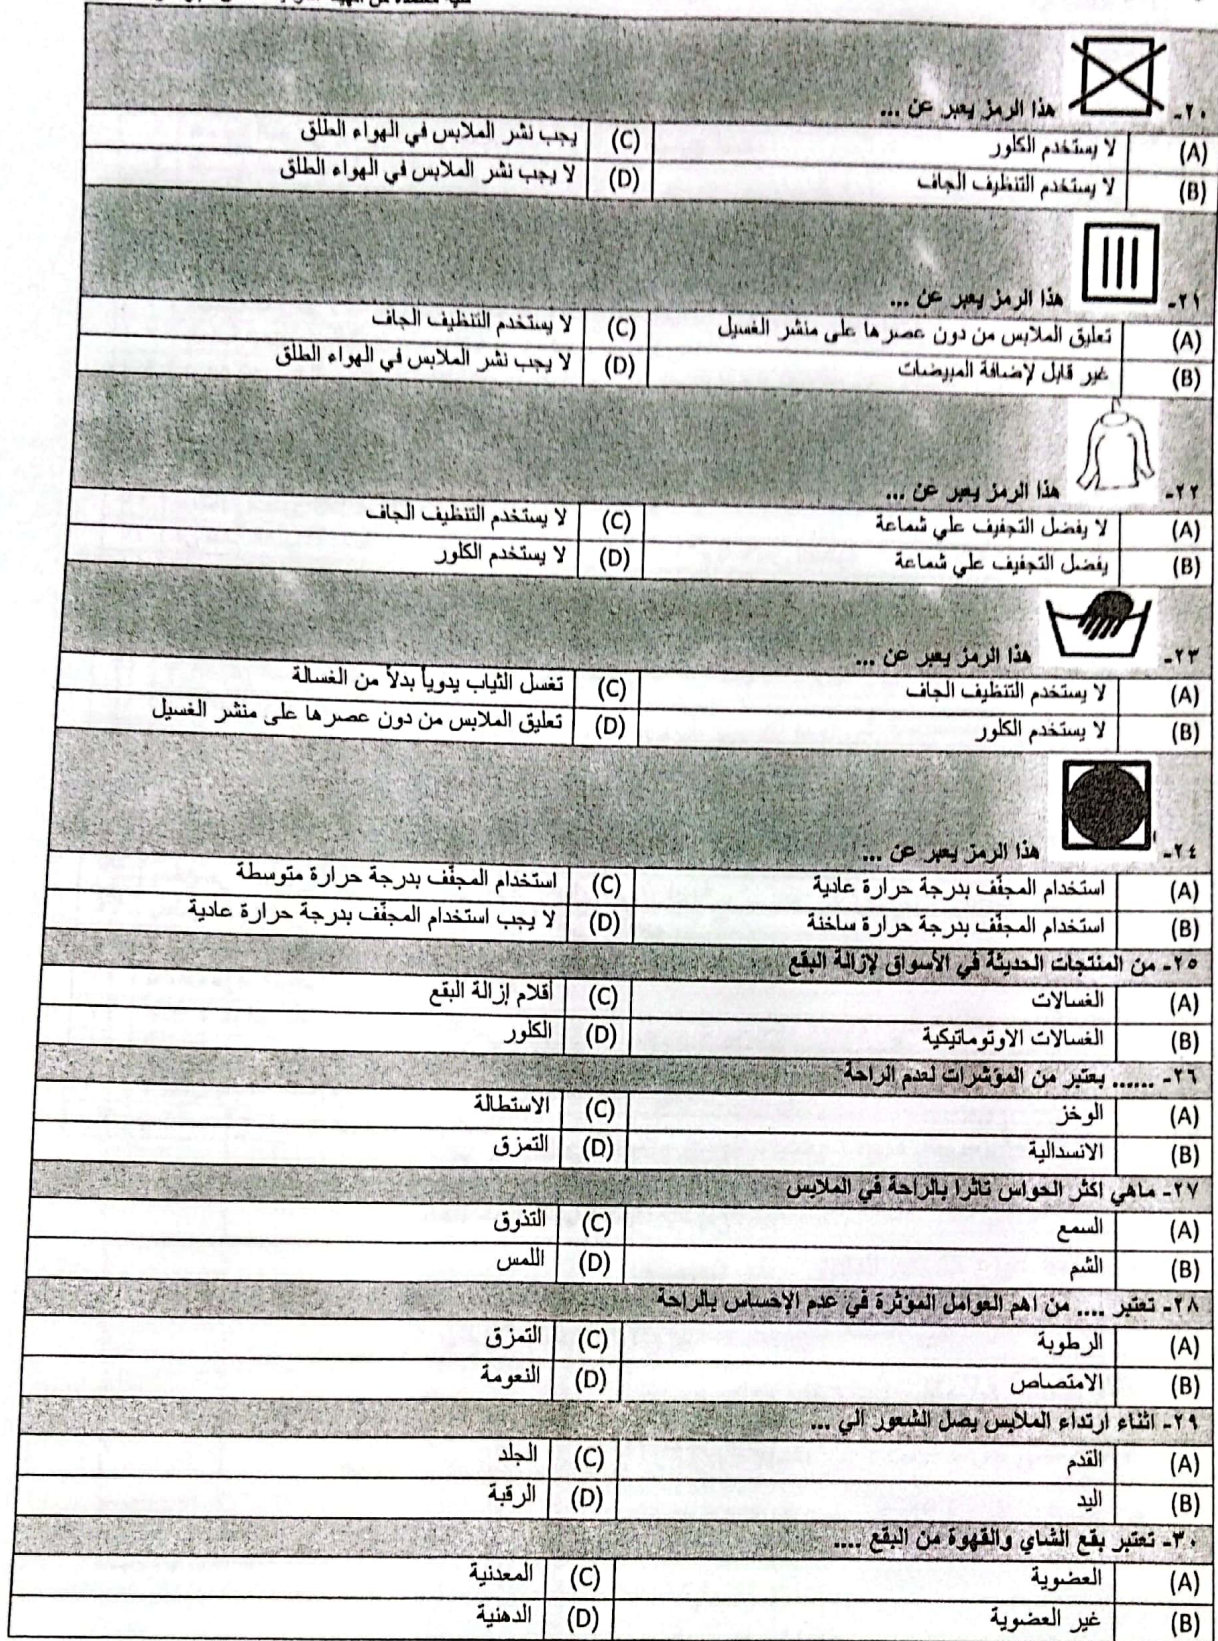 ٢٠- هذا الرمز يعبر عن ...
(A) لا يستخدم الكلور (C) يجب نشر الملابس في الهواء الطلق
(B) لا يستخدم التنظيف الجاف (D) لا يجب نشر الملابس في الهواء الطلق
٢١- هذا الرمز يعبر عن ...
(A) تعليق الملابس من دون عصرها على منشر الغسيل (C) لا يستخدم التنظيف الجاف
(B) غير قابل لإضافة المبيضات (D) لا يجب نشر الملابس في الهواء الطلق
٢٢- هذا الرمز يعبر عن ...
(A) لا يفضل التجفيف علي شماعة (C) لا يستخدم التنظيف الجاف
(B) يفضل التجفيف علي شماعة (D) لا يستخدم الكلور
٢٣- هذا الرمز يعبر عن ...
(A) لا يستخدم التنظيف الجاف (C) تغسل الثياب يدوياً بدلاً من الغسالة
(B) لا يستخدم الكلور (D) تعليق الملابس من دون عصرها على منشر الغسيل
٢٤- هذا الرمز يعبر عن ...
(A) استخدام المجفّف بدرجة حرارة عادية (C) استخدام المجفّف بدرجة حرارة متوسطة
(B) استخدام المجفّف بدرجة حرارة ساخنة (D) لا يجب استخدام المجفّف بدرجة حرارة عادية
٢٥- من المنتجات الحديثة في الأسواق لإزالة البقع
(A) الغسالات (C) أقلام إزالة البقع
(B) الغسالات الاوتوماتيكية (D) الكلور
٢٦- ...... يعتبر من المؤشرات لعدم الراحة
(A) الوخز (C) الاستطالة
(B) الانسدالية (D) التمزق
٢٧- ماهي اكثر الحواس تاثرا بالراحة في الملابس
(A) السمع (C) التذوق
(B) الشم (D) اللمس
٢٨- تعتبر .... من اهم العوامل المؤثرة في عدم الإحساس بالراحة
(A) الرطوبة (C) التمزق
(B) الامتصاص (D) النعومة
٢٩- اثناء ارتداء الملابس يصل الشعور الي ...
(A) القدم (C) الجلد
(B) اليد (D) الرقبة
٣٠- تعتبر بقع الشاي والقهوة من البقع ....
(A) العضوية (C) المعدنية
(B) غير العضوية (D) الدهنية